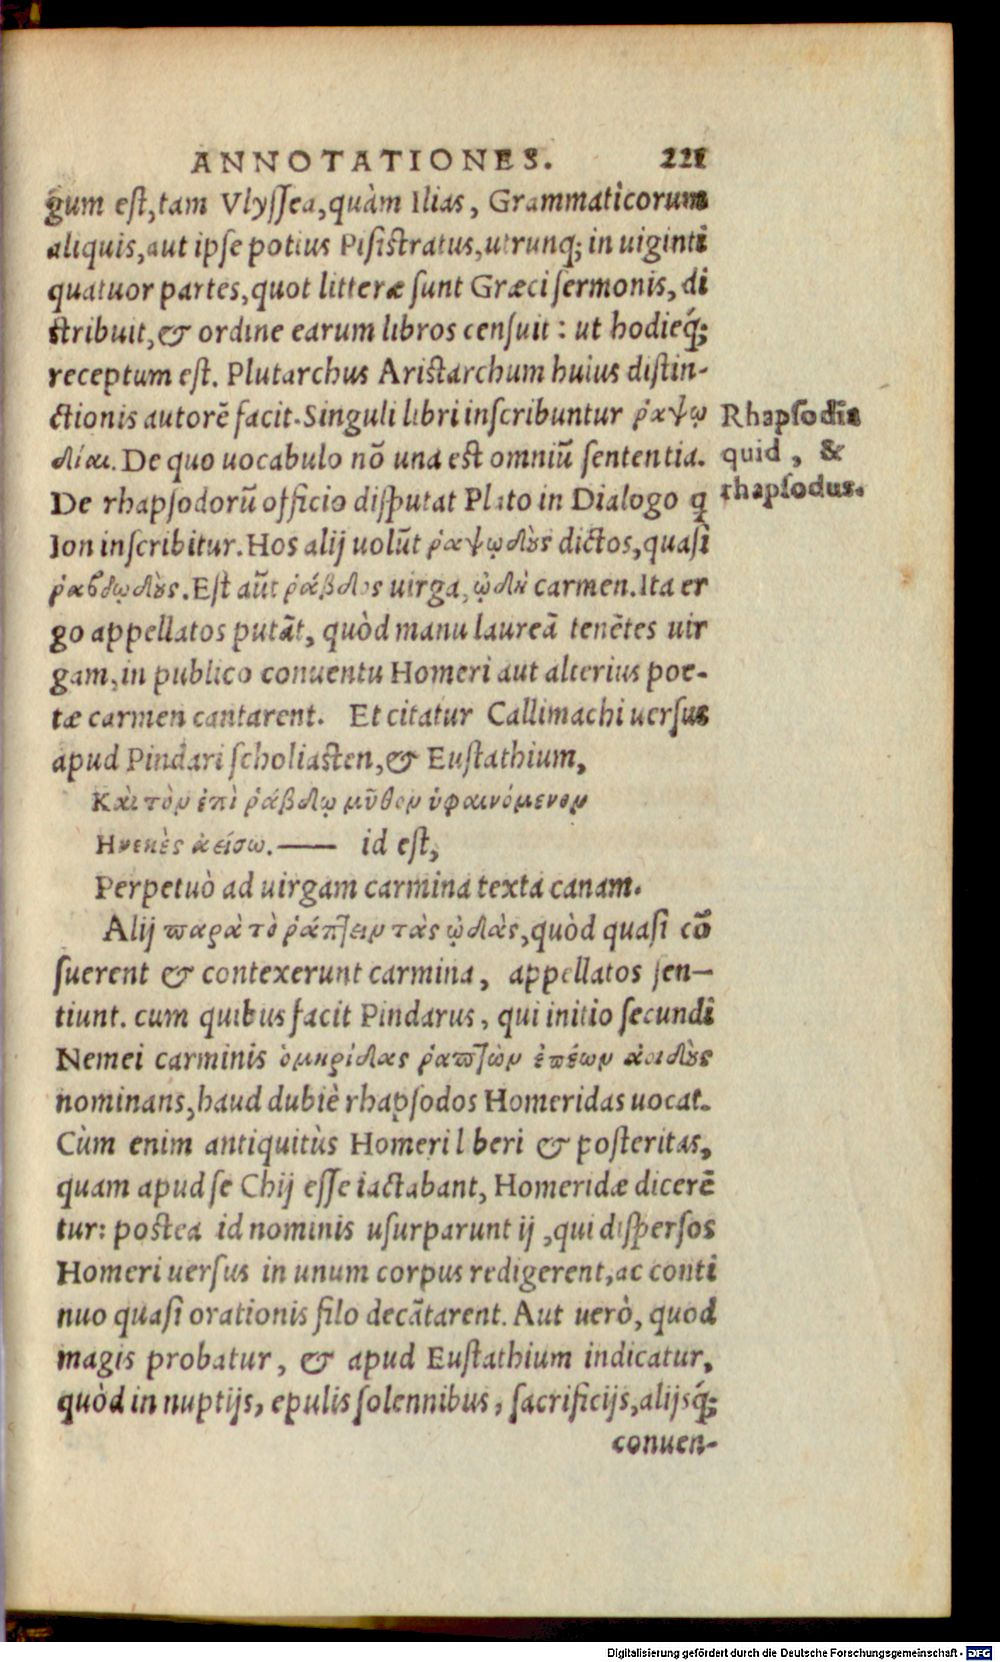 ANNOTATIONES. 221
gum est, tam Vlyssea, quàm Ilias, Grammaticorum
aliquis, aut ipse potius Pisistratus, utrunq; in uiginti
quatuor partes, quot litteræ sunt Græci sermonis, di
stribuit, & ordine earum libros censuit: ut hodieq́;
receptum est. Plutarchus Aristarchum huius distin-
ctionis autorē facit. Singuli libri inscribuntur ῥαψῳ
δίαι. De quo uocabulo nō una est omniū sententia.
Rhapsodia
quid, &
rhapsodus.
De rhapsodorū officio disputat Plato in Dialogo q
Ion inscribitur. Hos alij uolūt ῥαψῳδοὺς dictos, quasi
ῥαβδῳδοὺς. Est aūt ῥάβδος uirga, ᾠδὴ carmen. Ita er
go appellatos putāt, quòd manu laureā tenētes uir
gam, in publico conuentu Homeri aut alterius poe-
tæ carmen cantarent. Et citatur Callimachi uersus
apud Pindari scholiasten, & Eustathium,
Καὶ τὸν ἐπὶ ῥάβδῳ μῦθον ὑφαινόμενον
Ηνεκὲς ἀείσω.—— id est,
Perpetuò ad uirgam carmina texta canam.
Alij παρὰ τὸ ῥάπτειν τὰς ᾠδὰς, quòd quasi cō
suerent & contexerunt carmina, appellatos sen-
tiunt. cum quibus facit Pindarus, qui initio secundi
Nemei carminis ὁμηρίδας ῥαπτῶν ἐπέων ἀοιδοὺς
nominans, haud dubiè rhapsodos Homeridas uocat.
Cùm enim antiquitùs Homeri l beri & posteritas,
quam apud se Chij esse iactabant, Homeridæ dicerē
tur: postea id nominis usurparunt ij, qui dispersos
Homeri uersus in unum corpus redigerent, ac conti
nuo quasi orationis filo decātarent. Aut uerò, quod
magis probatur, & apud Eustathium indicatur,
quòd in nuptijs, epulis solennibus, sacrificijs, alijsq́;
conuen-
Digitalisierung gefördert durch die Deutsche Forschungsgemeinschaft - DFG